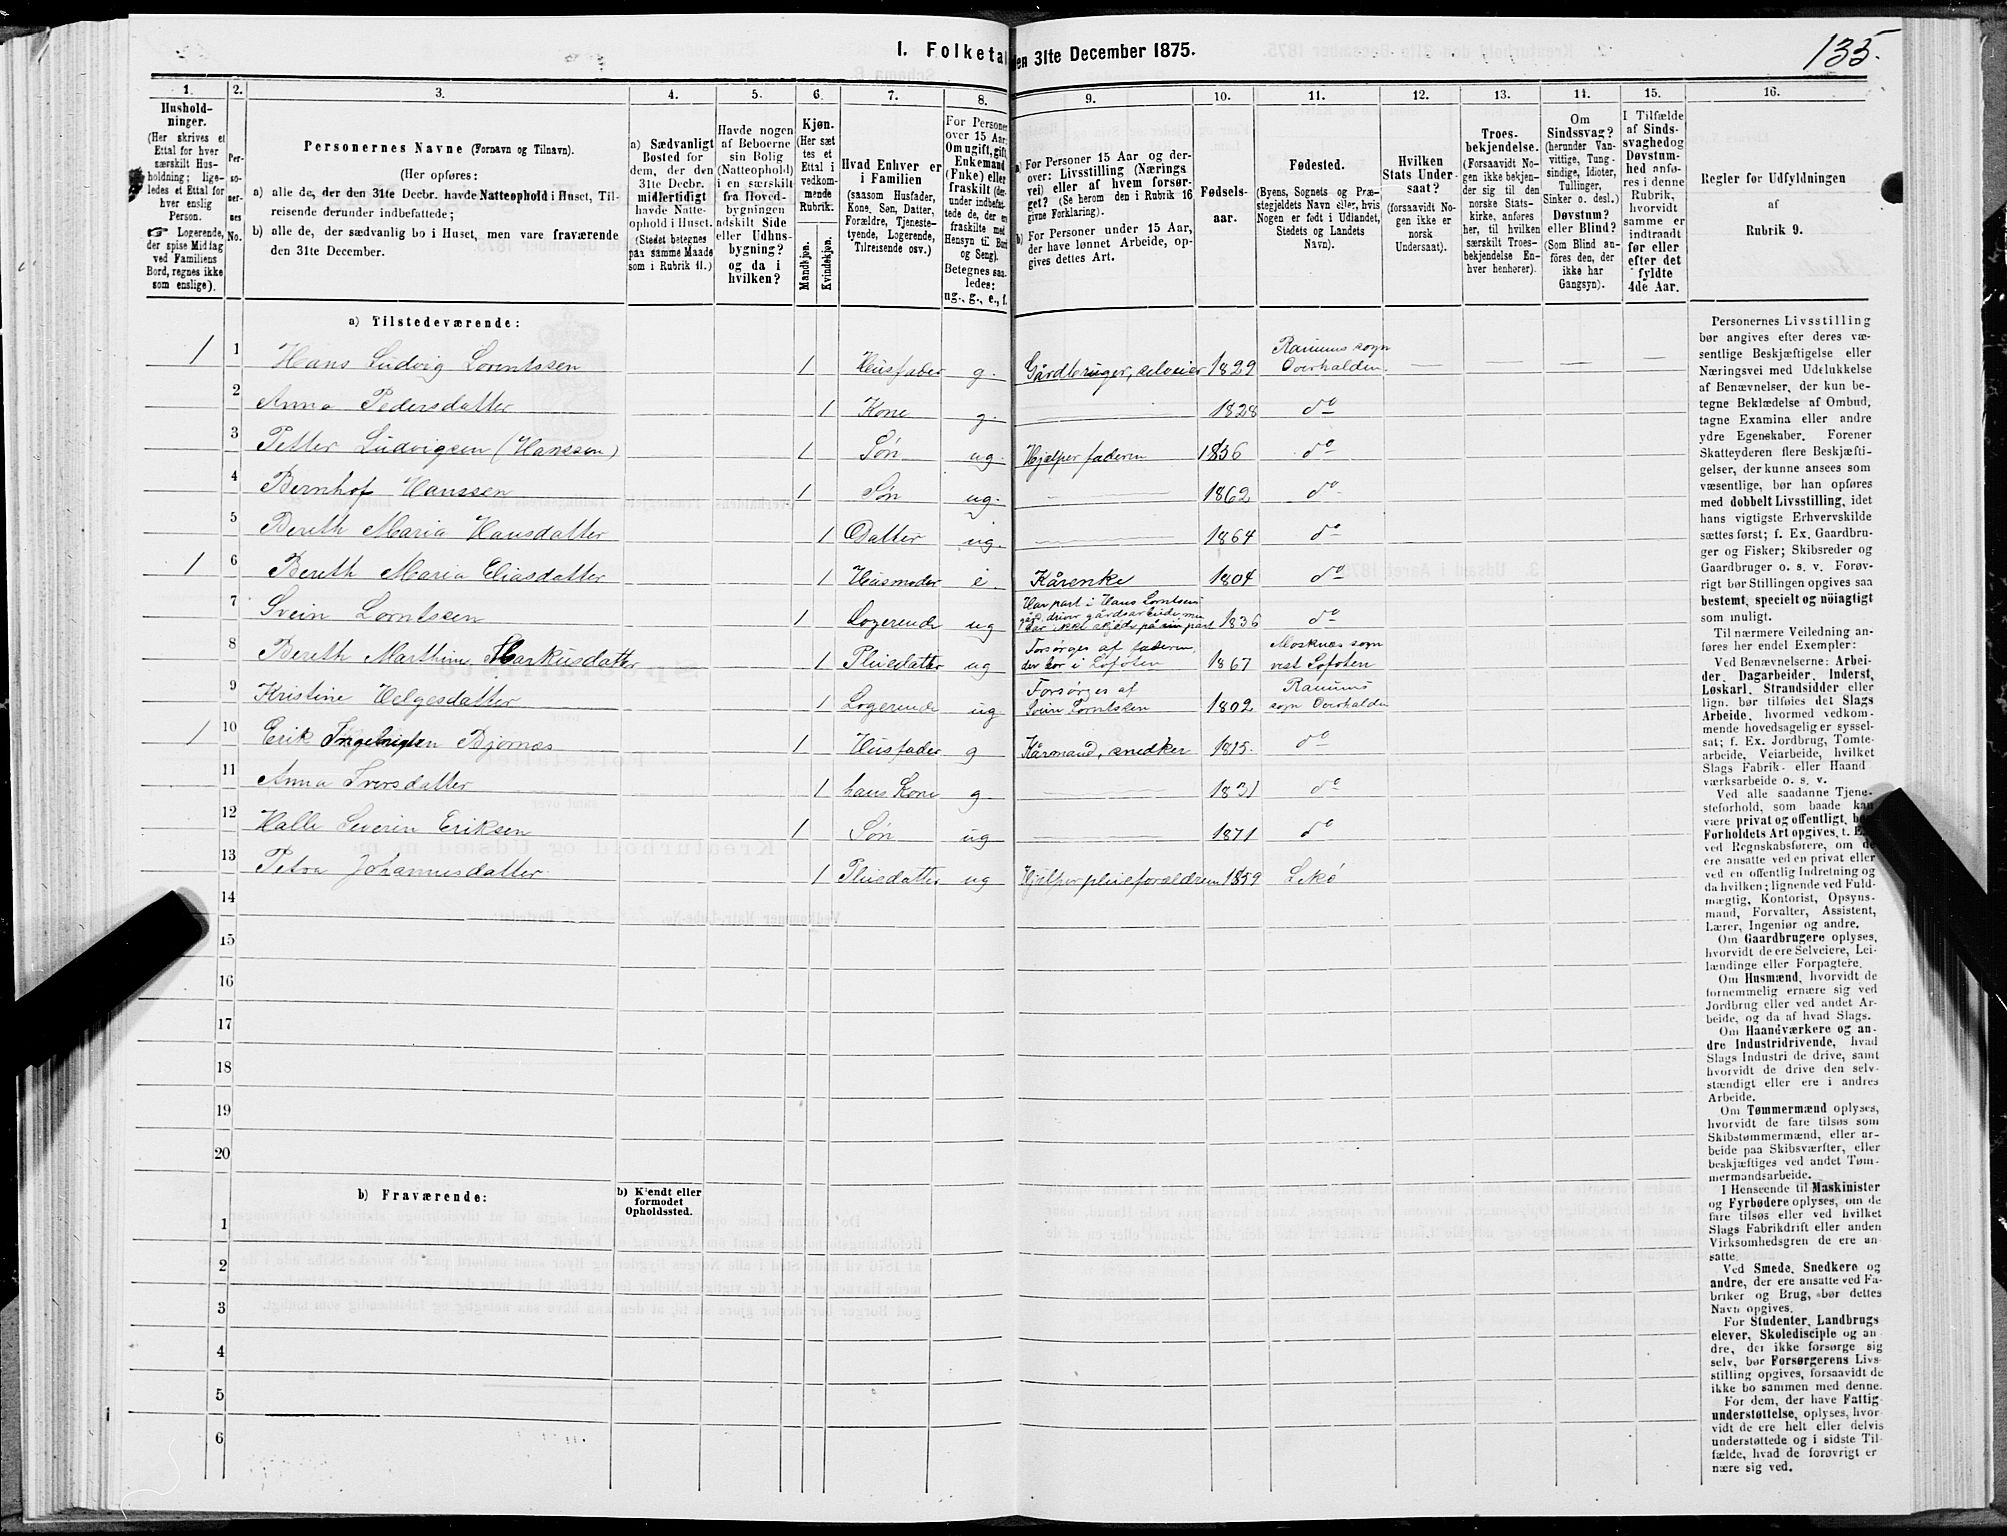 135.
I. Folketal
den 31te December 1875.
1. 2. 3. 4. 5. 6. 7. 8. 9. 10. 11. 12. 13. 14. 15. 16.
Hushold-
ninger.
(Her skrives et
Ettal for hver
særskilt Hus-
holdning; lige-
ledes et Ettal for
hver enslig
Person.
☞ Logerende,
der spise Middag
ved Familiens
Bord, regnes ikke
som enslige).
Per-
so-
ner-
nes
No.
Personernes Navne (Fornavn og Tilnavn).
(Her opføres:
a) alle de, der den 31te Decbr. havde Natteophold i Huset, Til-
reisende derunder indbefattede;
b) alle de, der sædvanlig bo i Huset, men vare fraværende
den 31te December.
a) Sædvanligt
Bosted for
dem, der den
31te Decbr.
midlertidigt
havde Natte-
ophold i Huset.
(Stedet betegnes
paa samme Maade
som i Rubrik 11.)
Havde nogen
af Beboerne
sin Bolig
(Natteophold)
i en særskilt
fra Hoved-
bygningen
adskilt Side
eller Udhus-
bygning?
og da i
hvilken?
Kjøn.
(Her sæt
tes et
Ettal i
vedkom-
mende
Rubrik.
Mandkjøn.
Kvindekjøn.
Hvad Enhver er
i Familien
(saasom Husfader,
Kone, Søn, Datter,
Forældre, Tjeneste-
tyende, Logerende,
Tilreisende osv.)
For Personer
over 15 Aar:
Om ugift, gift,
Enkemand
(Enke) eller
fraskilt (der-
under indbefat-
tede de, der ere
fraskilte med
Hensyn til Bord
og Seng).
Betegnes saa-
ledes:
ug., g., e., f.
a) For Personer 15 Aar og der-
over: Livsstilling (Nærings
vei) eller af hvem forsør-
get? (Se herom den i Rubrik 16
givne Forklaring).
b) For Personer under 15 Aar,
der have lønnet Arbeide, op-
gives dettes Art.
Fødsels-
aar.
Fødested.
(Byens, Sognets og Præ-
stegjeldets Navn eller, hvis
Nogen er født i Udlandet,
Stedets og Landets
Navn).
Hvilken
Stats Under-
saat?
(forsaavidt No-
gen ikke er
norsk
Undersaat).
Troes-
bekjendelse.
(Forsaavidt No-
gen ikke bekjen-
der sig til den
norske Stats-
kirke, anføres
her, til hvilken
særskilt Troes-
bekjendelse En-
hver henhører).
Om
Sindssvag?
(herunder Van-
vittige, Tung-
sindige, Idioter,
Tullinger,
Sinker o. desl.)
Døvstum?
eller Blind?
(Som Blind an-
føres den, der
ikke har
Gangsyn).
I Tilfælde
af Sinds-
svaghed og
Døvstum-
hed anfø-
res i denne
Rubrik,
hvorvidt
samme er
indtraadt
før eller
efter det
fyldte
4de Aar.
Regler før Udfyldningen
af
Rubrik 9.
a) Tilstedeværende:
1 1 Hans Ludvig Lorentssen 1 Husfader g. Gårdbruger, selveier 1829 Ranums sogn Overhalden. — — — —
2 Anna Pedersdatter 1 Kone g. 1828 do
3 Petter Ludvigsen (Hanssen) 1 Søn ug. Hjælper faderen 1856 do
4 Bernhof Hanssen 1 Søn ug. 1862 do
5 Bereth Maria Hansdatter 1 Datter ug. 1864 do
1 6 Bereth Maria Eliasdatter 1 Husmoder e. Kårenke 1804 do
7 Svein Lorntssen 1 Logerende ug Har part i Hans Lorntsens
gård, driver gårdsarbeide, men
har ikke skjøde på sin part 1836 do
8 Bereth Marthine Markusdatter 1 Pleiedatter ug Forsørges af faderen,
der bor i Lofoten 1867 Mosknæs sogn
vest Lofoten
9 Kristine Helgesdatter 1 Logerende ug Forsørges af
Svein Lorntssen 1802 Ranums
sogn Overhalden
1 10 Erik Ingebrigtsen Bjørnes 1 Husfader g Kårmand, snedker 1815. do
11 Anna Iversdatter 1 hans Kone g 1831 do
12 Halle Severin Eriksen 1 Søn ug 1871 do
13 Petra Johannesdatter 1 Pleiedatter ug Hjælper pleieforældrene 1859 Lekø
14
15
16
17
18
19
20
b) Fraværende:
b) Kjendt eller
formodet
Opholdssted.
1
2
3
4
5
6
Personernes Livsstilling
bør angives efter deres væ-
sentlige Beskjæftigelse eller
Næringsvei med Udelukkelse
af Benævnelser, der kun be-
tegne Beklædelse af Ombud,
tagne Examina eller andre
ydre Egenskaber. Forener
Skatteyderen flere Beskjæfti-
gelser, der kunne ansees som
væsentlige, bør han opføres
med dobbelt Livsstilling, idet
hans vigtigste Erhvervskilde
sættes først; f. Ex. Gaardbru-
ger og Fisker; Skibsreder og
Gaardbruger o. s. v. Forøv-
rigt bør Stillingen opgives saa
bestemt, specielt og nøiagtigt
som muligt.
Til nærmere Veiledning an-
føres her endel Exempler:
Ved Benævnelserne: Arbei-
der, Dagarbeider, Inderst,
Løskarl, Strandsidder eller
lign. bør tilføies det Slags
Arbeide, hvormed vedkom-
mende hovedsagelig er syssel-
sat; f. Ex. Jordbrug, Tomte-
arbeide, Veiarbeide, hvilket
Slags Fabrik- eller Haand
værksarbeide o. s. v.
Ved alle saadanne Tjene-
steforhold, som baade kan
være privat og offentligt, bør
Forholdets Art opgives, t. Ex.
ved Regnskabsførere, om de
ere ansatte ved en privat eller
ved en offentlig Indretning og
da hvilken; lignende ved Fuld-
mægtig, Kontorist, Opsyns-
mand, Forvalter, Assistent,
Lærer, Ingeniør og andre.
Om Gaardbrugere oplyses,
hvorvidt de ere Selveiere, Lei-
lændinge eller Forpagtere.
Om Husmænd, hvorvidt de
fornemmelig ernære sig ved
Jordbrug eller ved andet Ar-
beide, og da af hvad Slags.
Om Haandværkere og an-
dre Industridrivende, hvad
Slags Industri de drive, samt
hvorvidt de drive den selv-
stændigt eller ere i andres
Arbeide.
Om Tømmermænd oplyses,
hvorvidt de fare tilsøs som
Skibstømmermænd, eller ar-
beide paa Skibsværfter, eller
beskjæftiges ved andet Tøm-
mermandsarbeide.
I Henseende til Maskinister
og Fyrbødere oplyses, om de
fare tilsøs eller ved hvilket
Slags Fabrikdrift eller anden
Virksomhedsgren de ere an-
satte.
Ved Smede, Snedkere og
andre, der ere ansatte ved Fa-
briker og Brug, bør dettes
Navn opgives.
For Studenter, Landbrugs
elever, Skoledisciple og an
dre, der ikke forsørge sig
selv, bør Forsørgerens Livs-
stilling opgives, forsaavidt de
ikke bo sammen med denne.
For dem, der have Fattig
understøttelse, oplyses, hvor-
vidt de ere helt eller delvis
understøttede og i sidste Til-
fælde, hvad de forøvrigt er
nære sig ved.